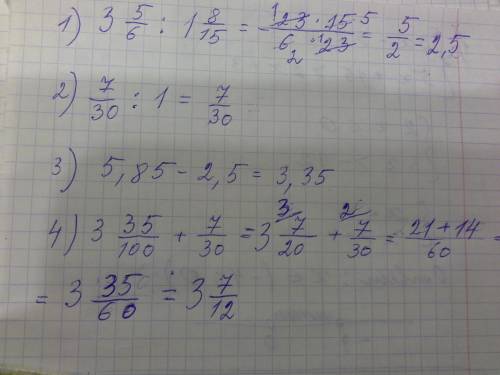 1) 3 5/6 : 1 8/15 = 23 · 15 / 6 · 23 = 5/2 = 2,5
2) 7/30 : 1 = 7/30
3) 5,85 - 2,5 = 3,35
4) 3 35/100 + 7/30 = 3 7/20 + 7/30 = 21+14/60 =
= 3 35/60 = 3 7/12